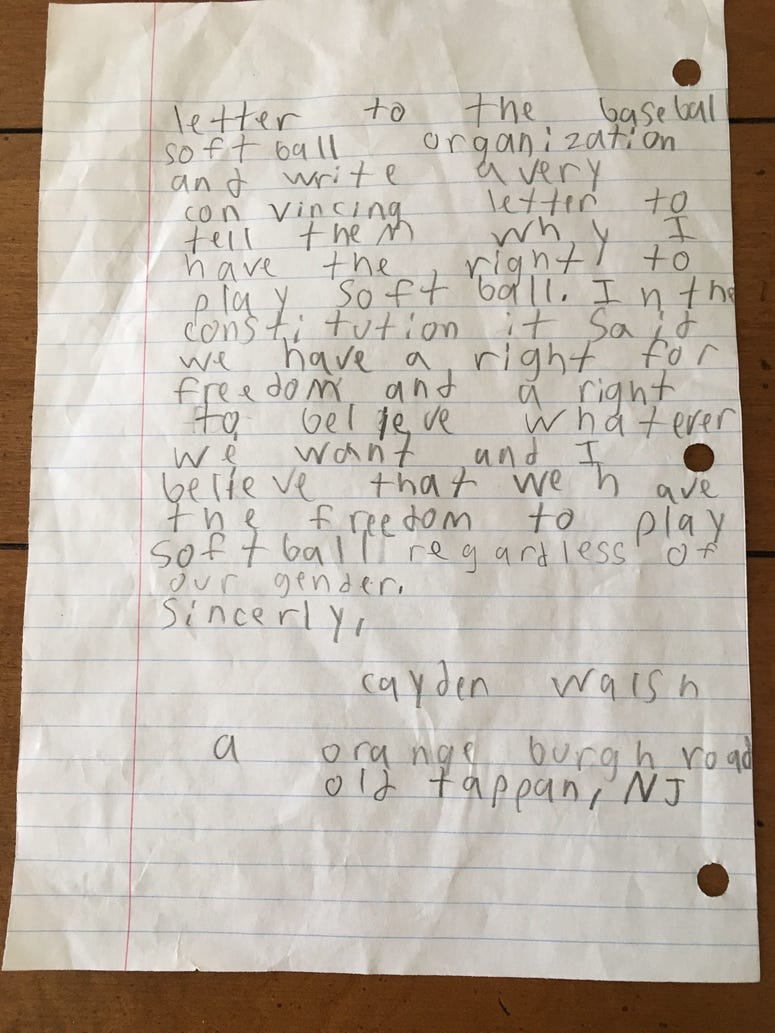 letter to the basebal
soft ball organization
and write a very
convincing letter to
tell them why I
have the right to
play soft ball. In the
constitution it said
we have a right for
freedom and a right
to believe whatever
we want and I
believe that we have
the freedom to play
softball regardless of
our gender.
Sincerly,
cayden walsh
a orange burgh road
old tappan, NJ